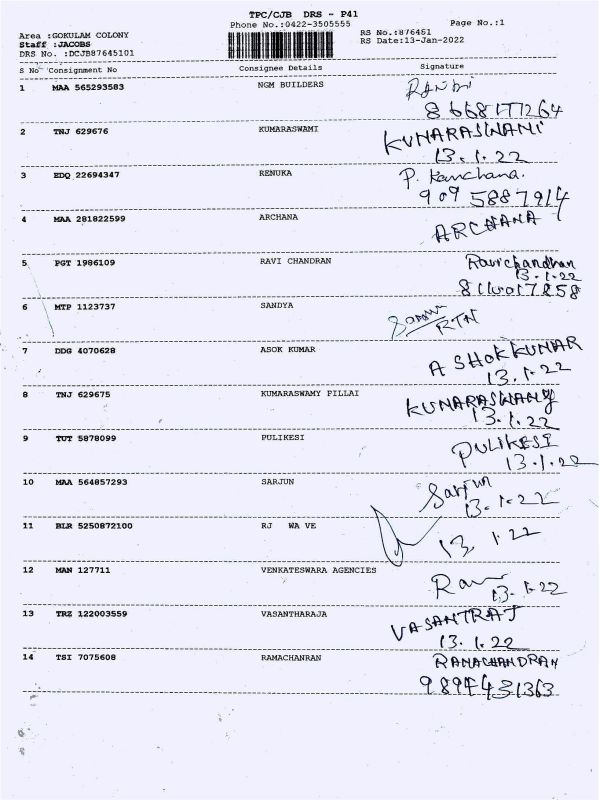 TPC/CJB DRS - P41
Phone No.:0422-3505555
Page No.:1
Area :GOKULAM COLONY
RS No.:876451
Staff :JACOBS
RS Date:13-Jan-2022
DRS No. :DCJB87645101
S No Consignment No Consignee Details Signature
1 MAA 565293583 NGM BUILDERS
2 TNJ 629676 KUMARASWAMI KUMARASWAMI
13.1.22
3 EDQ 22694347 RENUKA P. Kanchana.
909 5887914
4 MAA 281822599 ARCHANA ARCHANA
5 PGT 1986109 RAVI CHANDRAN Ravichandran
13.1.22
6 MTP 1123737 SANDYA
RTN
7 DDG 4070628 ASOK KUMAR ASHOKKUMAR
13.1.22
8 TNJ 629675 KUMARASWAMY PILLAI KUMARASWAMY
13.1.22
9 TUT 5878099 PULIKESI PULIKESI
13.1.22
10 MAA 564857293 SARJUN Sarjun
13.1.22
11 BLR 5250872100 RJ WA VE
13 1.22
12 MAN 127711 VENKATESWARA AGENCIES
13.1.22
13 TRZ 122003559 VASANTHARAJA VASANTRAJ
13.1.22
14 TSI 7075608 RAMACHANRAN RAMACHANDRAN
9894431363